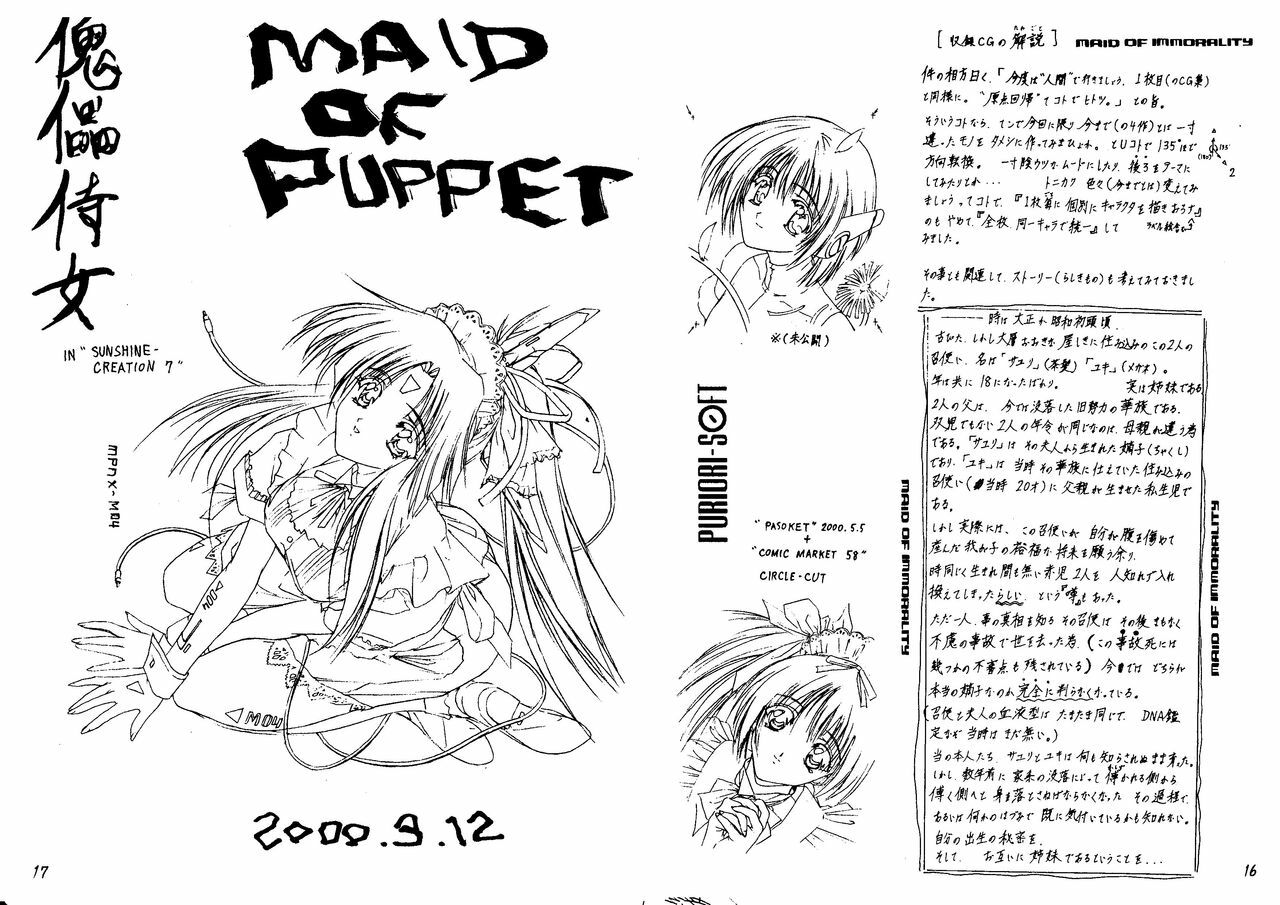 傀儡侍女
MAID
OF
PUPPET
IN "SUNSHINE-
CREATION 7"
MPNX-M04
M04
M04
2000.9.12
17
※(未公開)
PURIORI-SOFT
"PASOKET" 2000.5.5
+
"COMIC MARKET 58"
CIRCLE-CUT
[収録CGの解説] MAID OF IMMORALITY
件の相方曰く、「今度は"人間"で行きましょう、1枚目(のCG集)
と同様に。"原点回帰"てコトでヒトツ。」との旨。
そういうコトなら、てンで今回に限り今まで(の4作)とは一寸
違ったモノをタメシに作ってみまひょれ。とUコトで135°ほど
方向転換。一寸陰ウツなムードにしたり、後ろをテーマに
してみたりとか… トニカク色々(今までとは)変えてみ
ましょうってコトで、『1枚毎に個別にキャラクタを描きおろす』
のもやめて、『全枚、同一キャラで統一』して
みました。
その事とも関連して、ストーリー(らしきもの)も考えてみておきまし
た。
時は大正か昭和初頭頃
古びた、しかし大層おおきな屋しきに住み込みのこの2人の
召使い、名は「サユリ」(茶髪)「ユキ」(メガネ)。
年は共に18になったばかり。 実は姉妹である
2人の父は、今では没落した旧勢力の華族である。
双児でもない2人の年令が同じなのは、母親が違う為
である。「サユリ」はその夫人から生まれた嫡子(ちゃくし)
であり、「ユキ」は当時その華族に仕えていた住み込みの
召使い(当時20才)に父親が生ませた私生児で
ある。
しかし実際には、この召使いが自分が腹を傷めて
産んだ我が子の裕福な将来を願う余り、
時同じく生まれ間も無い赤児2人を人知れず入れ
換えてしまったらしい、という『噂』もあった。
ただ一人、事の真相を知るその召使はその後まもなく
不慮の事故で世を去った為(この事故死には
幾つかの不審点も残されている)今ではどちらが
本当の嫡子なのか完全に判らなくなっている。
(召使と夫人の血液型はたまたま同じで、DNA鑑
定など当時はまだ無い。)
当の本人たち、サユリとユキは何も知らされぬまま育った。
しかし、数年前に家系の没落によって傅かれる側から
傅く側へと身を落とさねばならなくなったその過程で、
あるいは何かのはずみで既に気付いているかも知れない。
自分の出生の秘密を、
そして、お互いに姉妹であるということを…
MAID OF IMMORALITY
MAID OF IMMORALITY
16